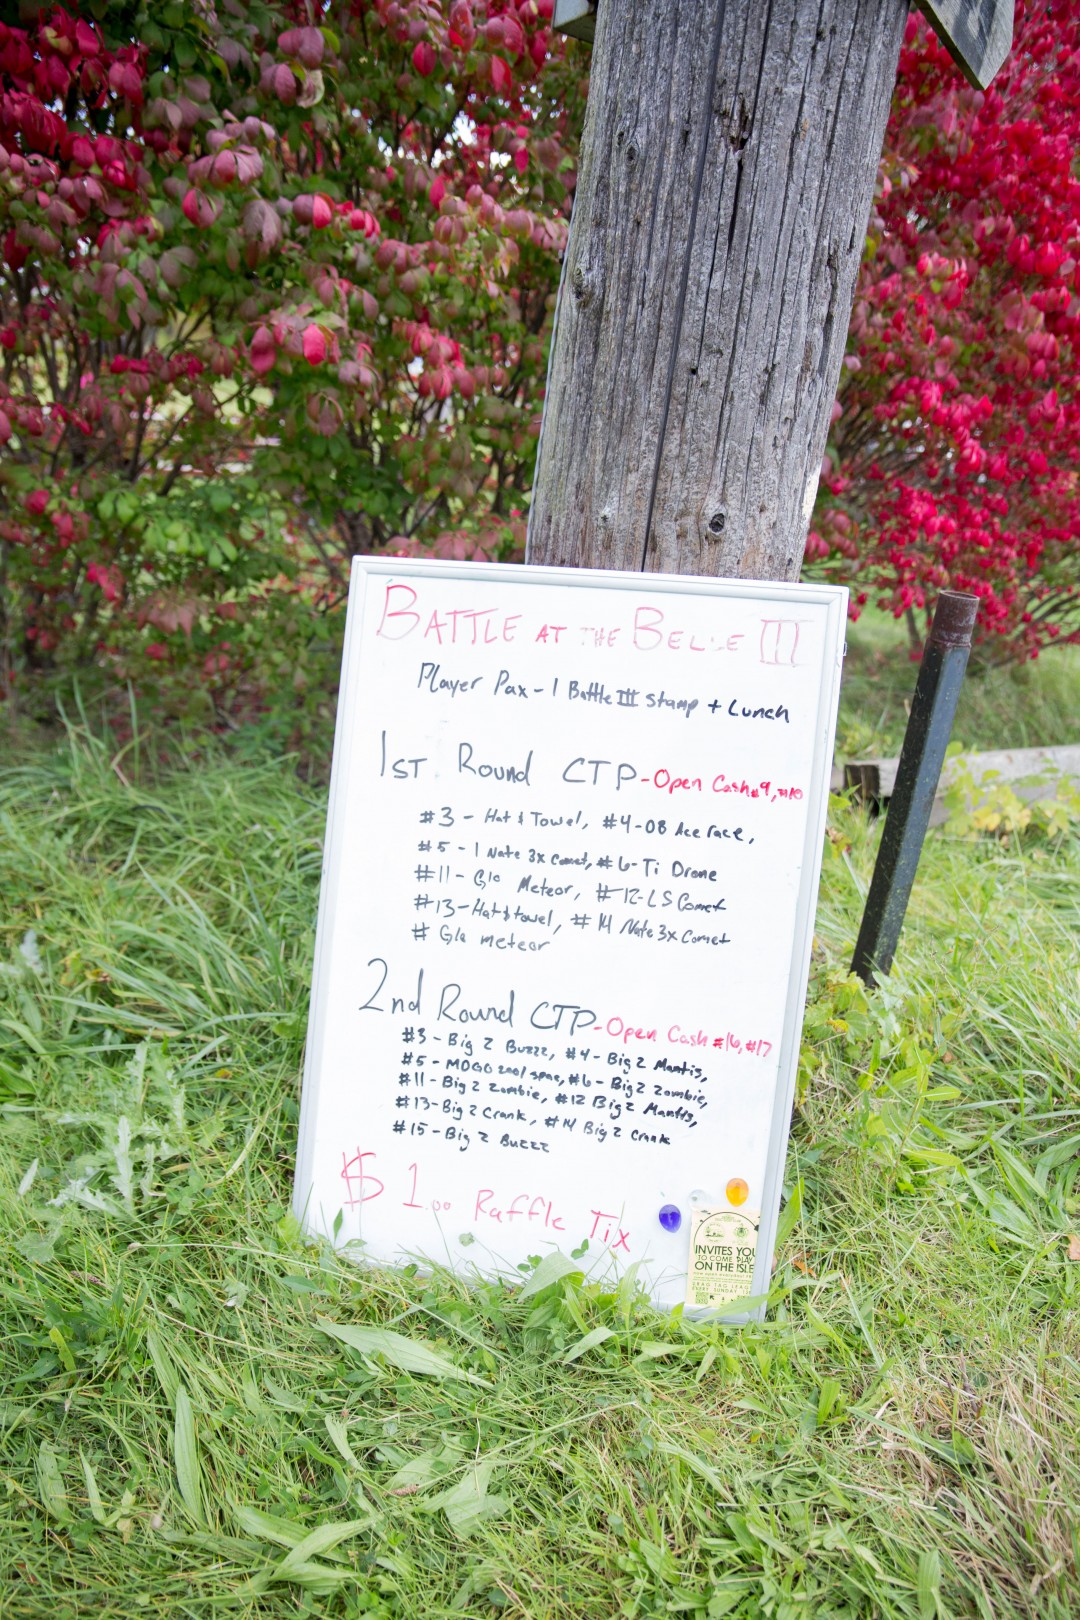 BATTLE AT THE BELLE III
Player Pax - 1 Battle III Stamp + Lunch
1ST Round CTP - Open Cash #9, #10
#3 - Hat & Towel, #4 - OB Ace race,
#5 - 1 Nate 3x Comet, #6 - Ti Drone
#11 - Glo Meteor, #12 - LS Comet
#13 - Hat & towel, #14 Nate 3x Comet
# Glo meteor
2nd Round CTP - Open Cash #16, #17
#3 - Big Z Buzzz, #4 - Big Z Mantis,
#5 - MDGO 2001 #6 - Big Z Zombie,
#11 - Big Z Zombie, #12 Big Z Mantis,
#13 - Big Z Crank, #14 Big Z Crank
#15 - Big Z Buzzz
$ 1.00 Raffle Tix
INVITES YOU
TO COME PLAY
ON THE ISLE
EVERY SUNDAY